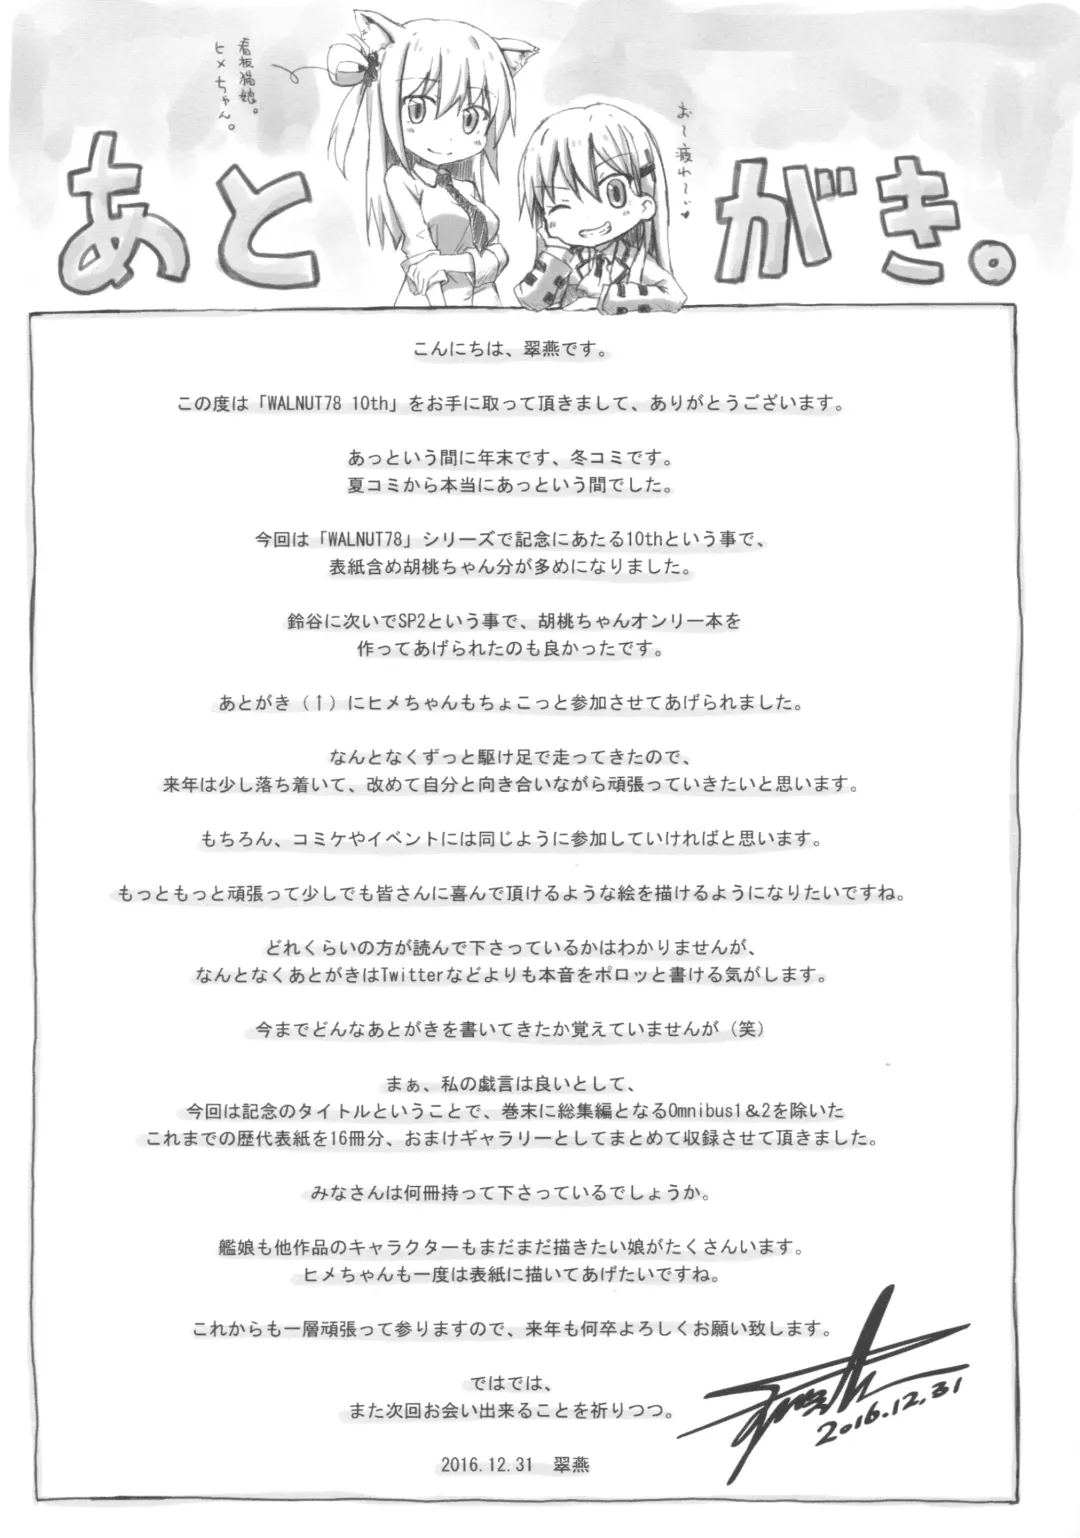 看板猫娘。
ヒメちゃん。
お〜疲れ〜い♥
あとがき。
こんにちは、翠燕です。
この度は「WALNUT78 10th」をお手に取って頂きまして、ありがとうございます。
あっという間に年末です、冬コミです。
夏コミから本当にあっという間でした。
今回は「WALNUT78」シリーズで記念にあたる10thという事で、
表紙含め胡桃ちゃん分が多めになりました。
鈴谷に次いでSP2という事で、胡桃ちゃんオンリー本を
作ってあげられたのも良かったです。
あとがき（↑）にヒメちゃんもちょこっと参加させてあげられました。
なんとなくずっと駆け足で走ってきたので、
来年は少し落ち着いて、改めて自分と向き合いながら頑張っていきたいと思います。
もちろん、コミケやイベントには同じように参加していければと思います。
もっともっと頑張って少しでも皆さんに喜んで頂けるような絵を描けるようになりたいですね。
どれくらいの方が読んで下さっているかはわかりませんが、
なんとなくあとがきはTwitterなどよりも本音をポロッと書ける気がします。
今までどんなあとがきを書いてきたか覚えていませんが（笑）
まぁ、私の戯言は良いとして、
今回は記念のタイトルということで、巻末に総集編となるOmnibus1＆2を除いた
これまでの歴代表紙を16冊分、おまけギャラリーとしてまとめて収録させて頂きました。
みなさんは何冊持って下さっているでしょうか。
艦娘も他作品のキャラクターもまだまだ描きたい娘がたくさんいます。
ヒメちゃんも一度は表紙に描いてあげたいですね。
これからも一層頑張って参りますので、来年も何卒よろしくお願い致します。
ではでは、
また次回お会い出来ることを祈りつつ。
2016.12.31　翠燕
2016.12.31